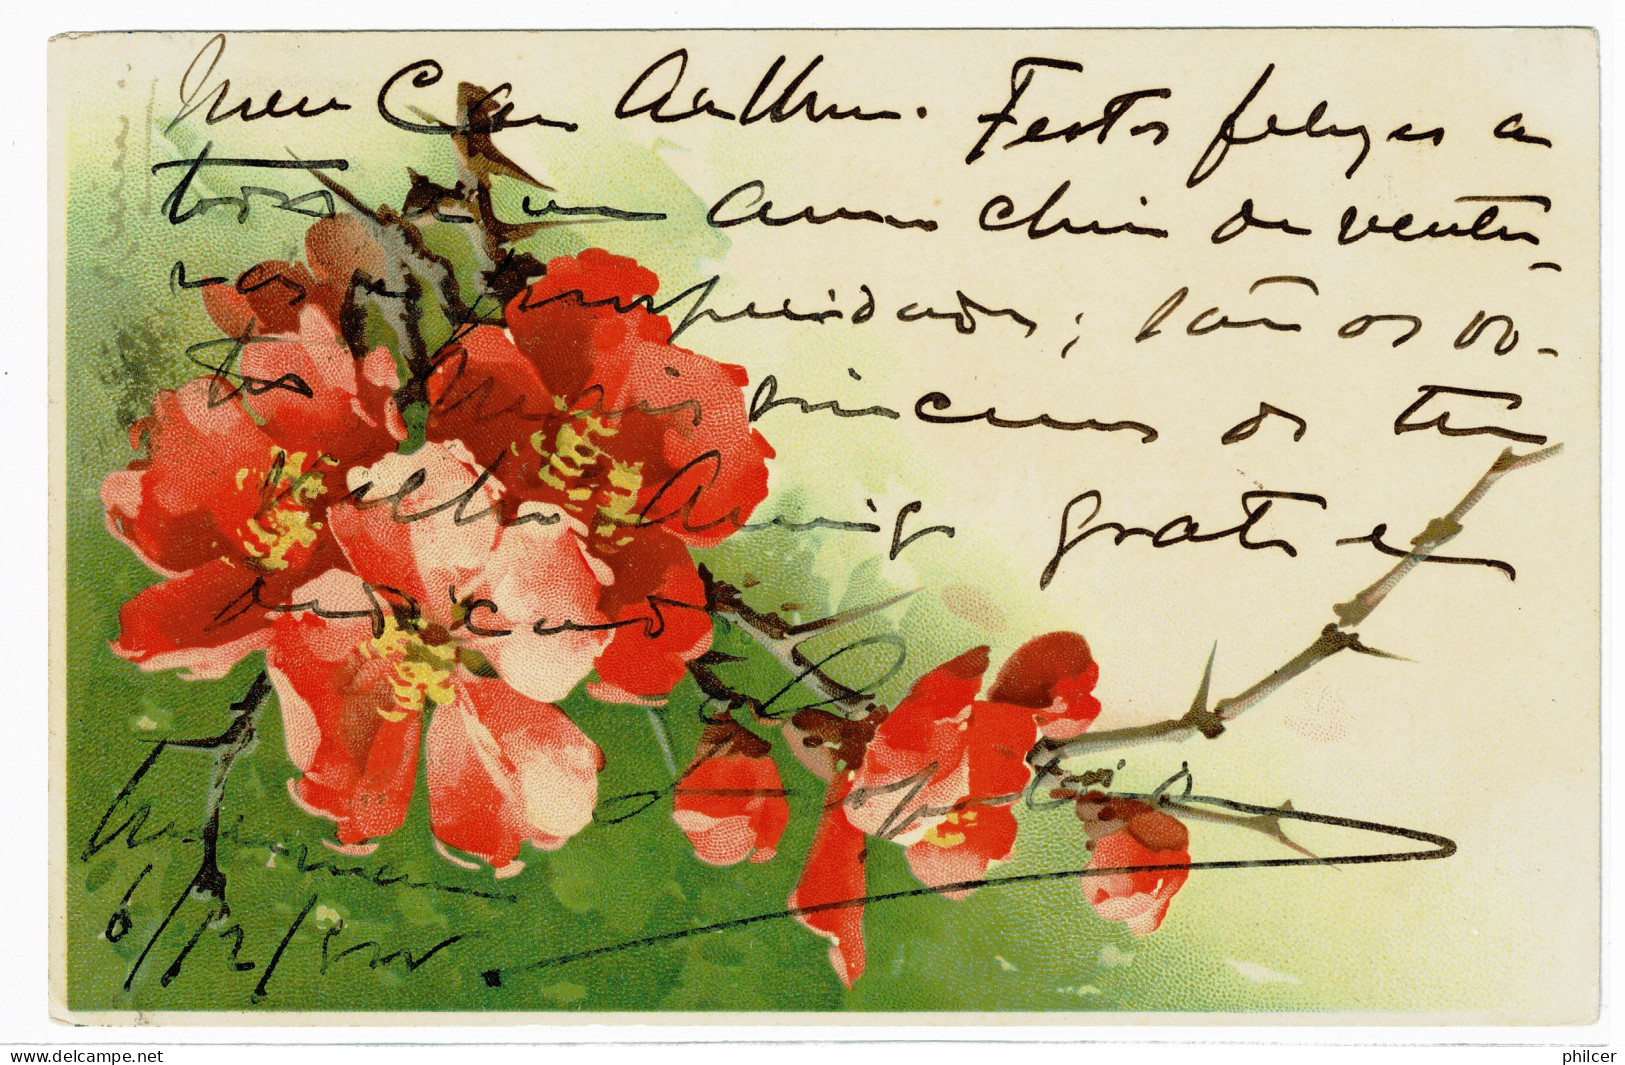 Meu Caro Arthur. Festas felizes a
todos e um anno cheio de ventu
ras e prosperidades; são os vo-
tos mais sinceros do teu
Velho Amigo grato e
dedicado
6/12/
delcampe.net
philcer